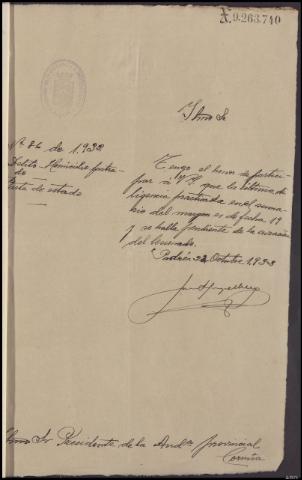 X.9.263.740
Ilmo Sr
Nº 86 de 1.932
Delito Homicidio frustra-
do
Parte de estado
Tengo el honor de partici-
par á V.I. que la última di-
ligencia practicada en el suma-
rio del margen es de fecha 19
y se halla pendiente de la curación
del lesionado.
Padrón 22 Octubre 1.933
Ilmo Sr Presidente de la Audª Provincial
Coruña